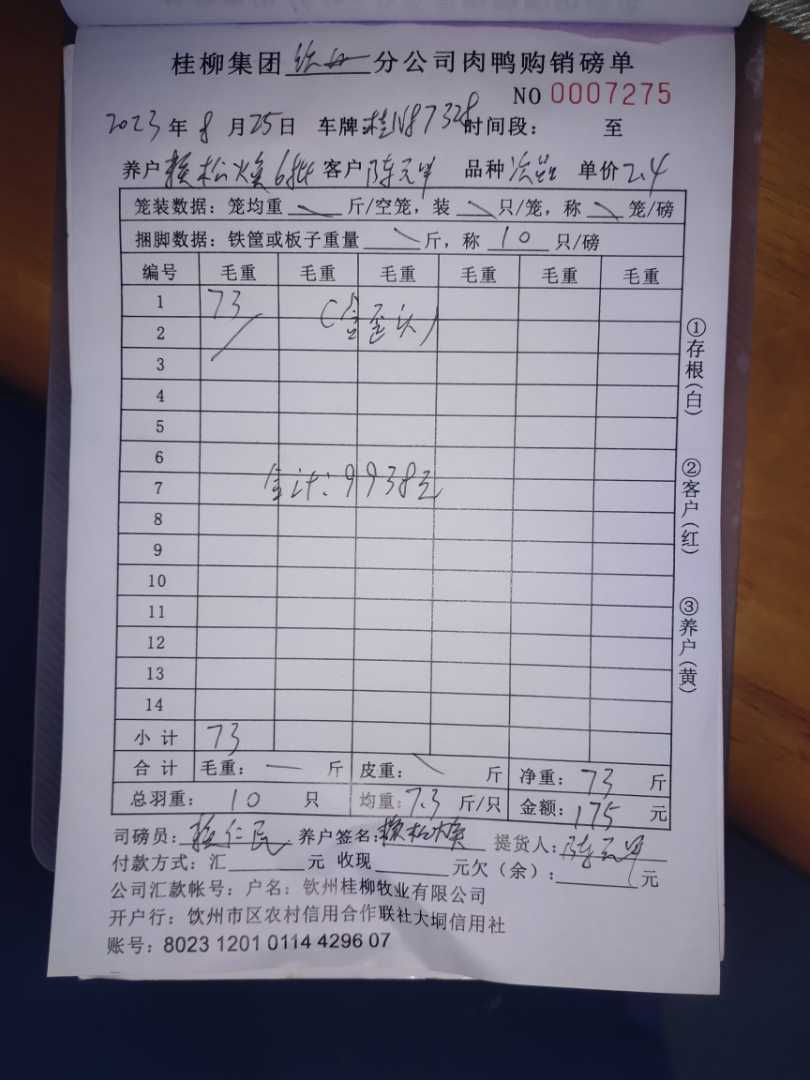 桂柳集团 钦州 分公司肉鸭购销磅单
NO 0007275
2023年8月25日 车牌:桂N87328 时间段: 至
养户 赖松焕 6批 客户 陈元甲 品种 次品 单价 2.4
笼装数据: 笼均重 斤/空笼, 装 只/笼, 称 笼/磅
捆脚数据: 铁筐或板子重量 斤, 称 10 只/磅
编号 毛重 毛重 毛重 毛重 毛重 毛重
1 73 (含歪头)
2
3
4
5
6
7 合计: 9938元
8
9
10
11
12
13
14
小计 73
合计 毛重: — 斤 皮重: 斤 净重: 73 斤
总羽重: 10 只 均重: 7.3 斤/只 金额: 175 元
司磅员: 仁民 养户签名: 赖松焕 提货人: 陈元甲
付款方式: 汇 元 收现 元欠(余): 元
公司汇款帐号: 户名: 钦州桂柳牧业有限公司
开户行: 饮州市区农村信用合作联社大垌信用社
账号: 8023 1201 0114 4296 07
①存根(白)
②客户(红)
③养户(黄)